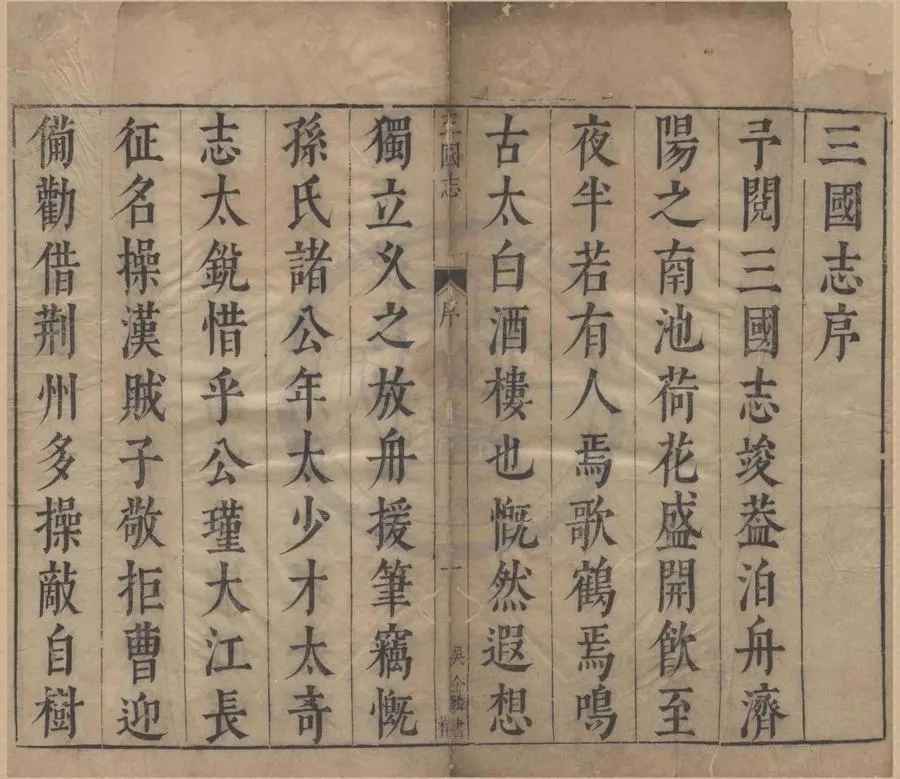 三國志序
予閱三國志竣葢泊舟濟
陽之南池荷花盛開飲至
夜半若有人焉歌鶴焉鳴
古太白酒樓也慨然遐想
三國志 序 一
獨立久之放舟援筆竊慨
孫氏諸公年太少才太奇
志太銳惜乎公瑾大江長
征名操漢賊子敬拒曹迎
備勸借荆州多操敵自樹